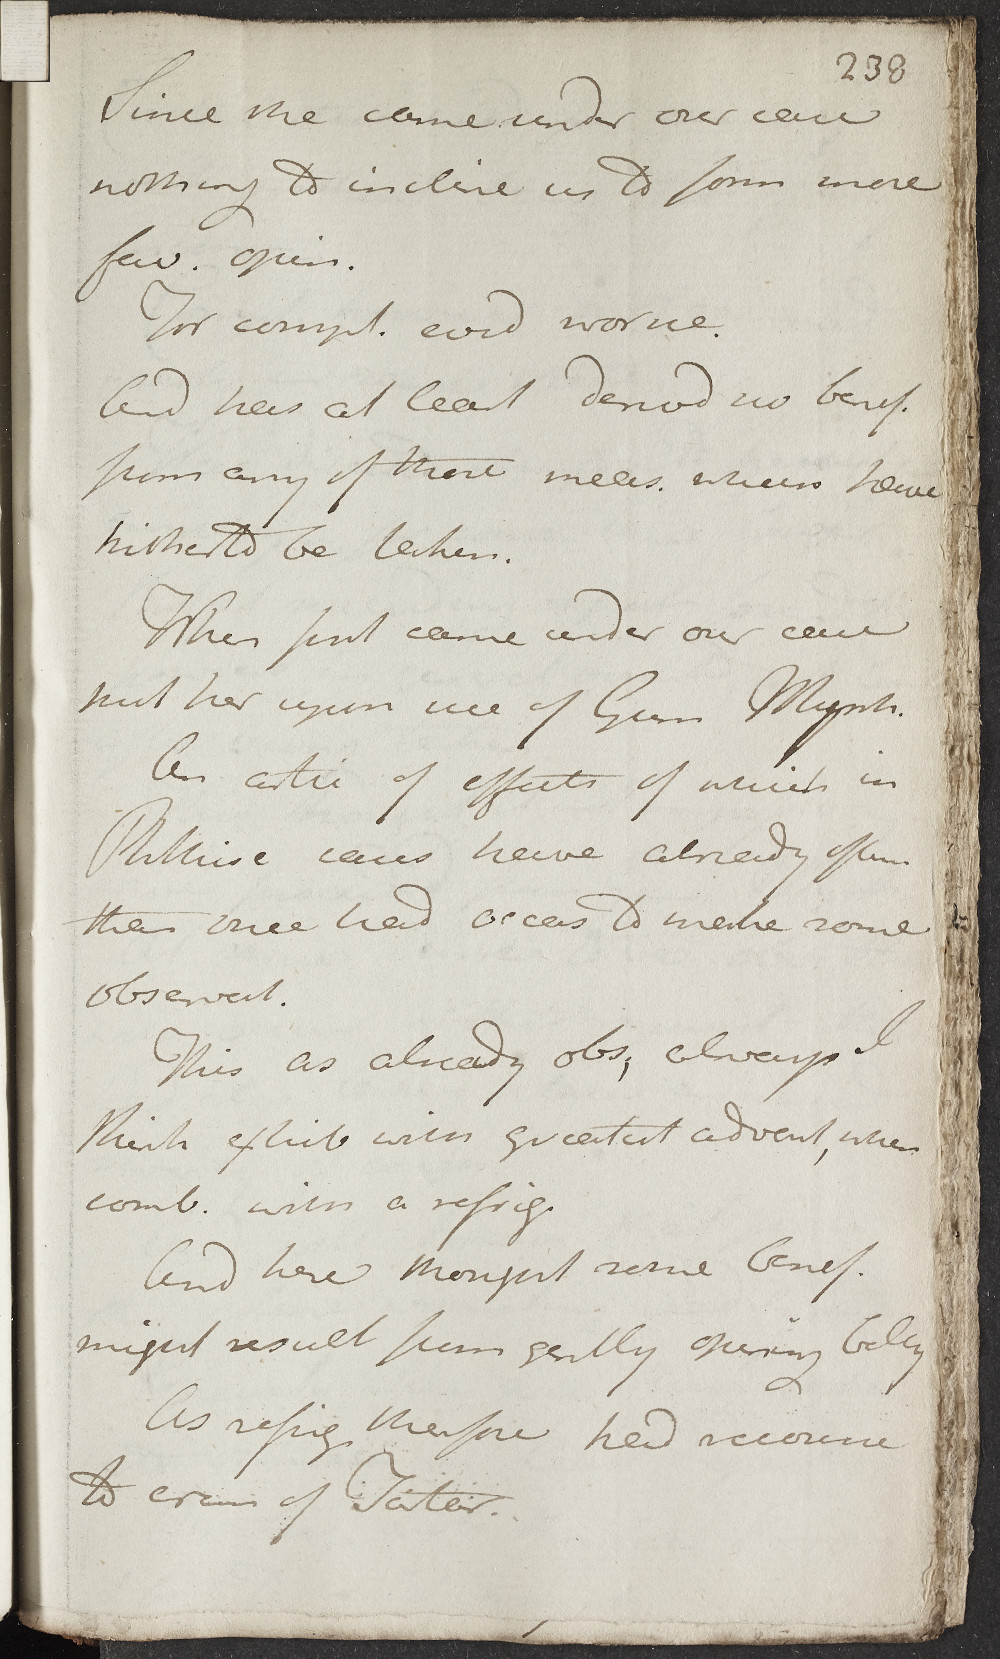 238
Since she came under our care
nothing to incline us to form more
fav. opin.
For compl. evid worse.
And has at least derivd no benef.
from any of those meas. which have
hitherto be taken.
When first came under our care
put her upon use of Gum Myrrh.
On actn of effects of which in
Phthisic cases have already oftner
than once had occas to make some
observat.
This as already obs, always I
think exhib with greatest advant, when
comb. with a refrig.
And here thought some benef.
might result from gently opening belly
As refrig therefore had recourse
to crem of Tartar.